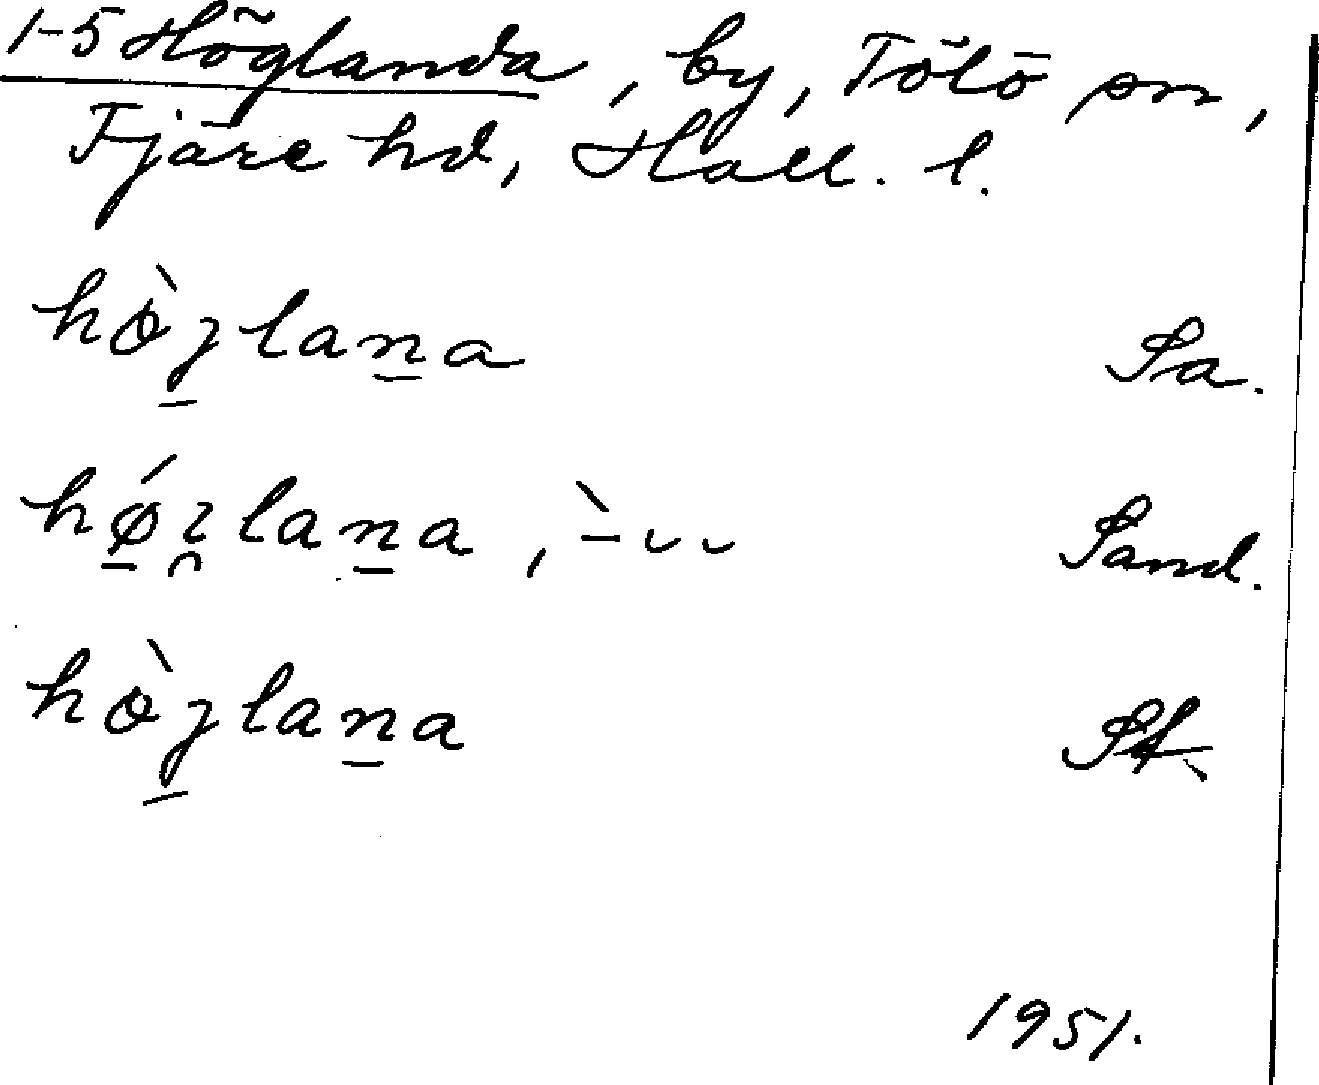 1-5 Höglanda, by, Tölö sn,
Fjäre hd, Hall. l.
hø̀ʒ̠lan̠a Sa.
hǿ̠ɀ̯lan̠a, ˋ–ᴗᴗ Sand.
hø̀ʒ̠lan̠a
1951.